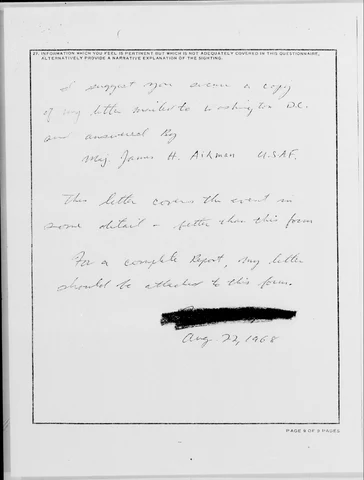 27. INFORMATION WHICH YOU FEEL IS PERTINENT BUT WHICH IS NOT ADEQUATELY COVERED IN THIS QUESTIONNAIRE,
ALTERNATIVELY PROVIDE A NARRATIVE EXPLANATION OF THE SIGHTING.
I suggest you secure a copy
of my letter mailed to Washington D.C.
and answered By
Maj. James H. Aikman U.S.A.F.
This letter covers the event in
some detail - better than this form
For a complete Report, my letter
should be attached to this form.
Aug 22, 1968
PAGE 9 OF 9 PAGES